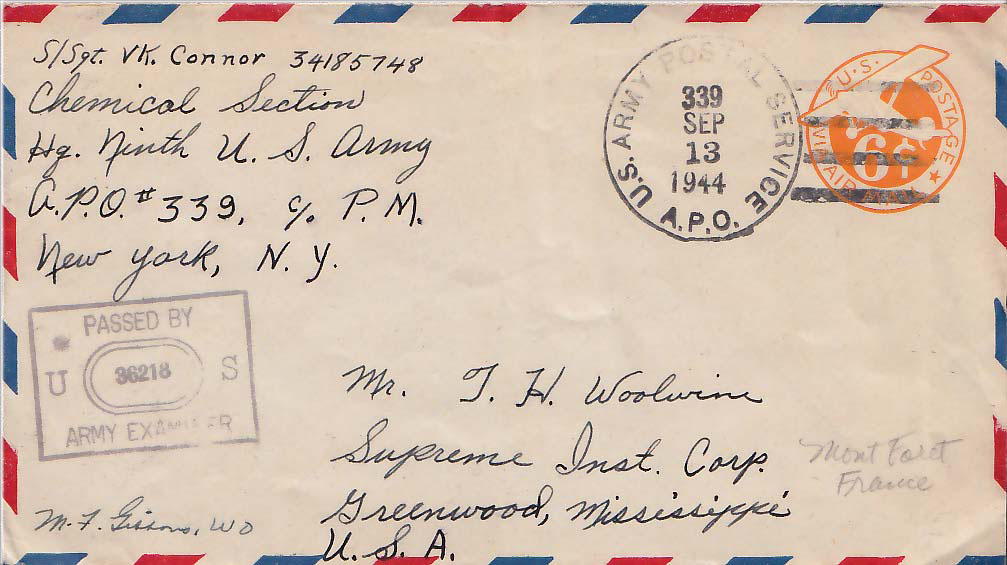 S/Sgt. VK. Connor 34185748
Chemical Section
Hq. Ninth U. S. Army
A.P.O. # 339, c/o P. M.
New York, N. Y.
U.S. ARMY POSTAL SERVICE
339
SEP
13
1944
A.P.O.
U.S. POSTAGE
6¢
VIA AIR MAIL
PASSED BY
U 36218 S
ARMY EXAMINER
Mr. T. H. Woolwine
Supreme Inst. Corp.
Greenwood, Mississippi
U. S. A.
Mont Foret
France
M. F. Gissons, WO